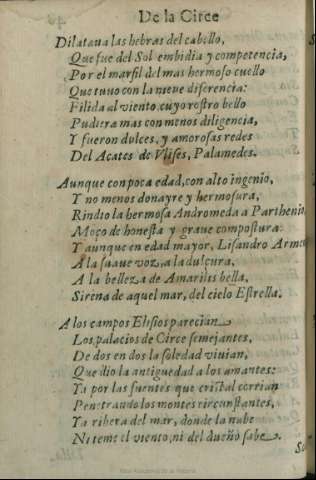 De la Circe
Dilataua las hebras del cabello,
Que fue del Sol embidia y competencia,
Por el marfil del mas hermoso cuello
Que tuuo con la nieue diferencia:
Filida al viento, cuyo rostro bello
Pudiera mas con menos diligencia,
Y fueron dulces, y amorosas redes
Del Acates de Vlises, Palamedes.
Aunque con poca edad, con alto ingenio,
Y no menos donayre y hermosura,
Rindio la hermosa Andromeda a Parthenio
Moço de honesta y graue compostura:
Y aunque en edad mayor, Lisandro
A la suaue voz, a la dulçura,
A la belleza de Amarilis bella,
Sirena de aquel mar, del cielo Estrella.
A los campos Elisios parecian
Los palacios de Circe semejantes,
De dos en dos la soledad viuian,
Que dio la antiguedad a los amantes:
Ya por las fuentes que cristal corrian
Penetrando los montes circunstantes,
Ya ribera del mar, donde la nabe
Ni teme el viento, ni del dueño sabe.
Real Academia de la Historia